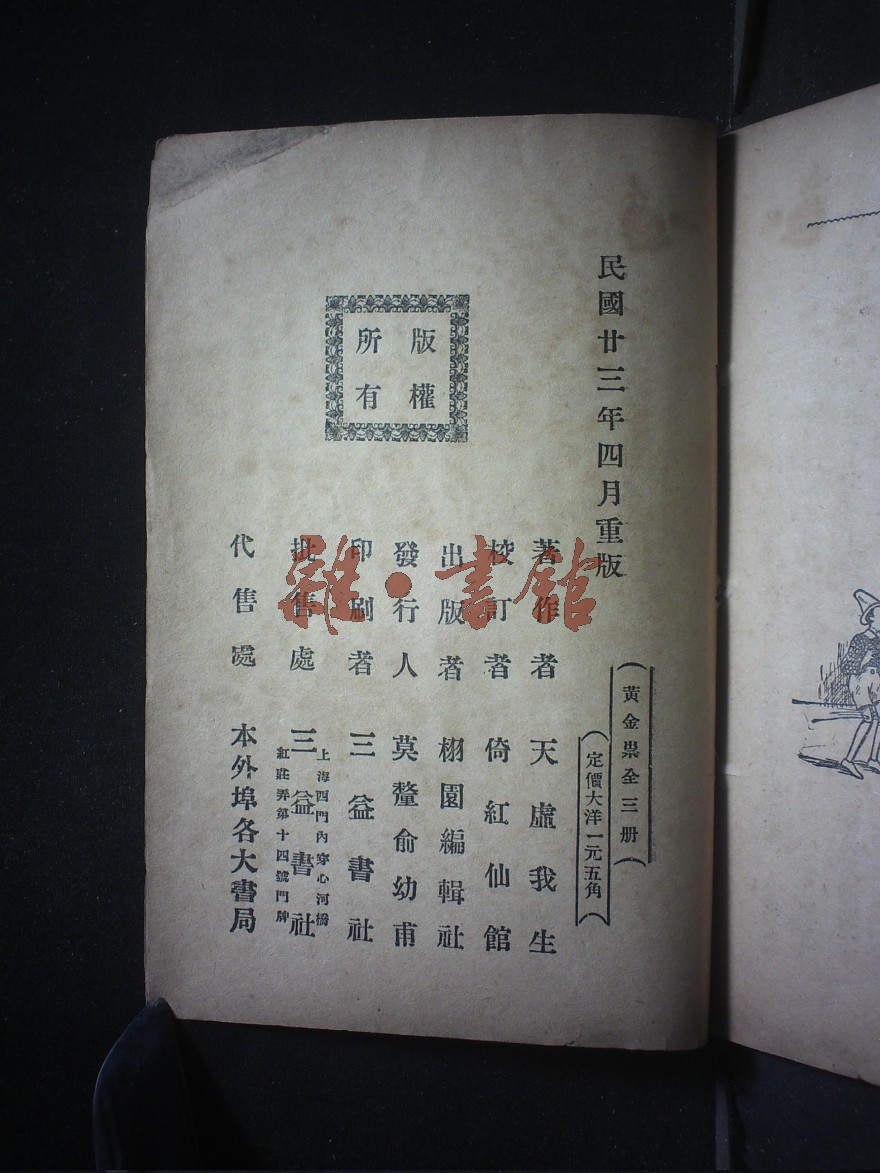 民國廿三年四月重版
黃金祟全三册
定價大洋一元五角
版權
所有
著作者 天虛我生
校訂者 倚紅仙館
出版者 栩園編輯社
發行人 莫釐俞幼甫
印刷者 三益書社
批售處 三益書社
上海西門內穿心河橋
紅莊弄第十四號門牌
代售處 本外埠各大書局
雜·書館